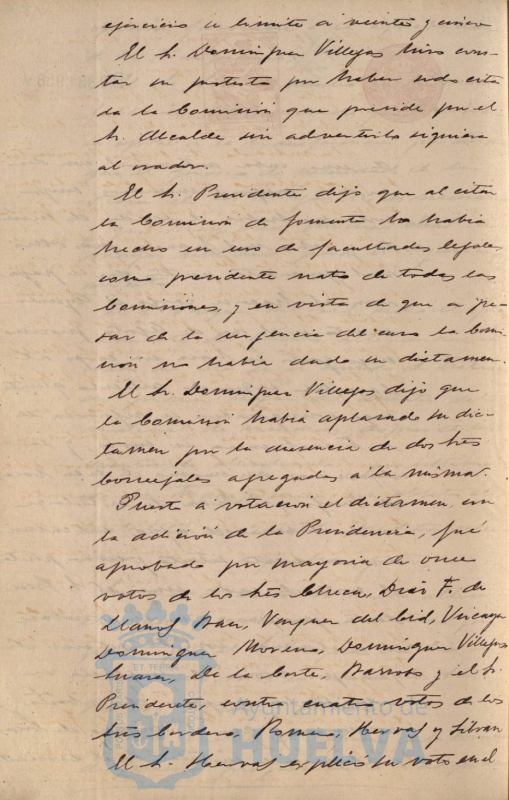 ejercicio se limite a veinte y cinco
El Sr. Dominguez Villegas hizo cons-
tar su protesta por haber sido cita
da la Comision que preside por el
Sr. Alcalde sin advertirlo siquiera
al orador.
El Sr. Presidente dijo que al citar
la Comision de fomento lo habia
hecho en uso de facultades legales
como presidente nato de todas las
Comisiones, y en vista de que a pe-
sar de la urgencia del caso la Comi
sion no habia dado su dictamen.
El Sr. Dominguez Villegas dijo que
la Comision habia aplazado su dic-
tamen por la ausencia de dos Sres
Concejales agregados a la misma.
Puesto a votacion el dictamen, con
la adicion de la Presidencia, fué
aprobado por mayoria de once
votos de los Sres Checa, Diaz F. de
Llanos, Vazquez del Cid, Vizcaya
Dominguez Moreno, Dominguez Villegas
Suarez, De la Corte, Barroso y el Sr.
Presidente, contra cuatro votos de los
Sres Cordero, Romero, Hervas y
El Sr. Hervas explicó su voto en el
Ayuntamiento de
HUELVA